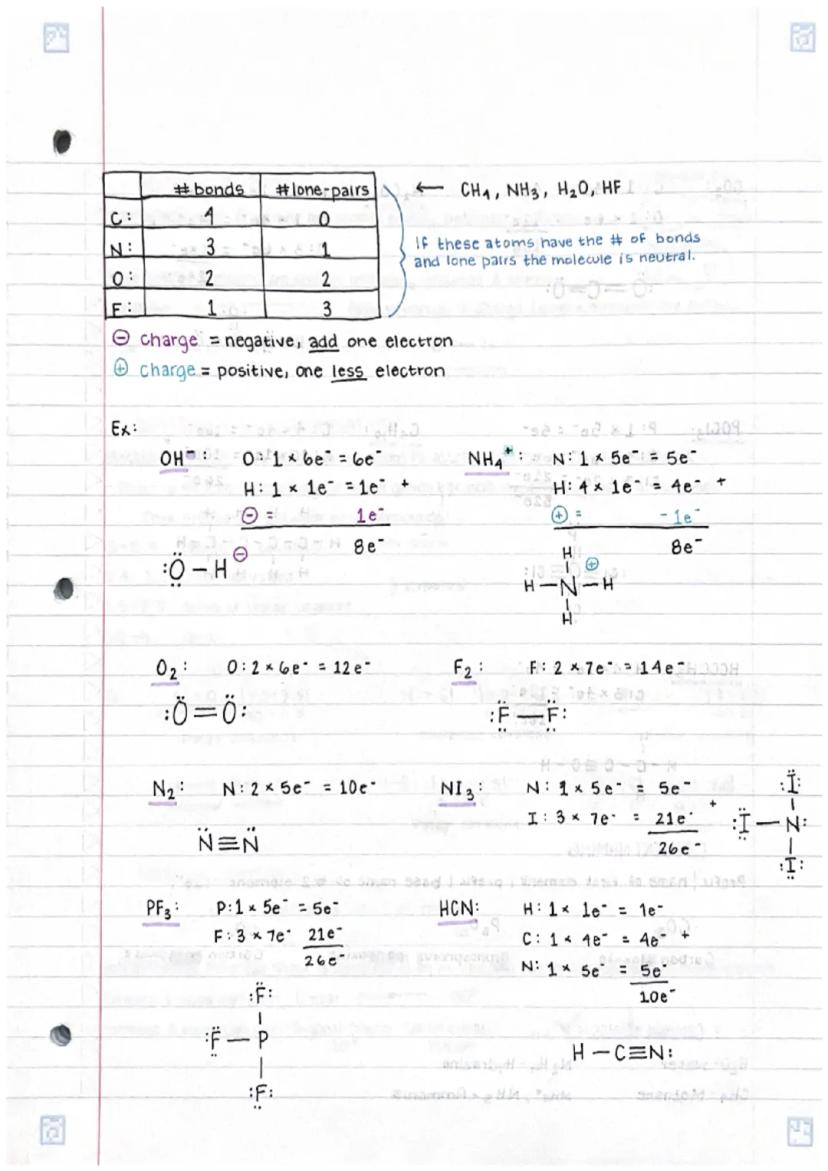 #bonds #lone-pairs ← CH4, NH3, H2O, HF
C: 4 0
N: 3 1
O: 2 2
F: 1 3
If these atoms have the # of bonds
and lone pairs the molecule is neutral.
⊖ charge = negative, add one electron
⊕ charge = positive, one less electron
Ex:
OH⁻: O: 1 × 6e⁻ = 6e⁻
H: 1 × 1e⁻ = 1e⁻ +
⊖ = 1e⁻
8e⁻
:Ö – H ⊖
NH4⁺: N: 1 × 5e⁻ = 5e⁻
H: 4 × 1e⁻ = 4e⁻ +
⊕ = -1e⁻
8e⁻
H ⊕
H – N – H
H
O2: O: 2 × 6e⁻ = 12e⁻
:Ö = Ö:
F2: F: 2 × 7e⁻ = 14e⁻
:F̈ — F̈:
N2: N: 2 × 5e⁻ = 10e⁻
N̈ ≡ N̈
NI3: N: 1 × 5e⁻ = 5e⁻
I: 3 × 7e⁻ = 21e⁻ +
26e⁻
:Ï:
:Ï — N:
:Ï:
PF3: P: 1 × 5e⁻ = 5e⁻
F: 3 × 7e⁻ 21e⁻
26e⁻
:F̈:
:F̈ — P
:F̈:
HCN: H: 1 × 1e⁻ = 1e⁻
C: 1 × 4e⁻ = 4e⁻ +
N: 1 × 5e⁻ = 5e⁻
10e⁻
H – C ≡ N: